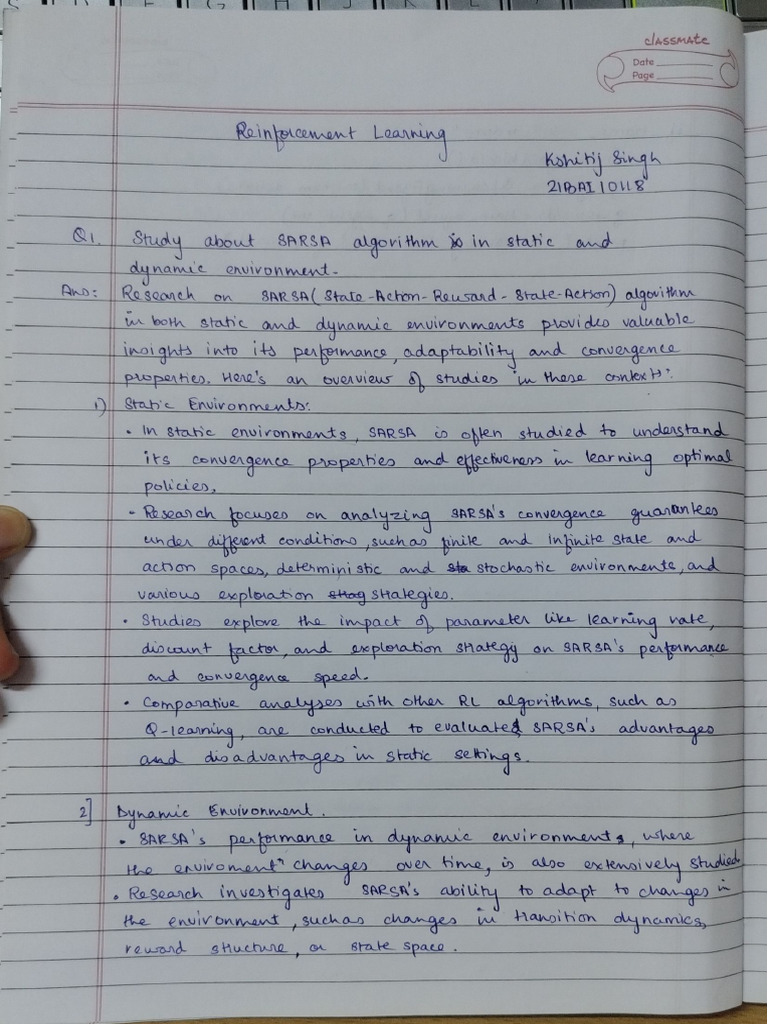 classmate
Date
Page
Reinforcement Learning
Kshitij Singh
21BAI10118
Q1. Study about SARSA algorithm in static and
dynamic environment.
Ans: Research on SARSA (State-Action-Reward-State-Action) algorithm
in both static and dynamic environments provides valuable
insights into its performance, adaptability and convergence
properties. Here's an overview of studies in these contexts:
1) Static Environments:
• In static environments, SARSA is often studied to understand
its convergence properties and effectiveness in learning optimal
policies.
• Research focuses on analyzing SARSA's convergence guarantees
under different conditions, such as finite and infinite state and
action spaces, deterministic and stochastic environments, and
various exploration strategies.
• Studies explore the impact of parameter like learning rate,
discount factor, and exploration strategy on SARSA's performance
and convergence speed.
• Comparative analyses with other RL algorithms, such as
Q-learning, are conducted to evaluate SARSA's advantages
and disadvantages in static settings.
2] Dynamic Environment.
• SARSA's performance in dynamic environments, where
the enviroment changes over time, is also extensively studied
• Research investigates SARSA's ability to adapt to changes in
the environment, such as changes in transition dynamics,
reward structure, or state space.